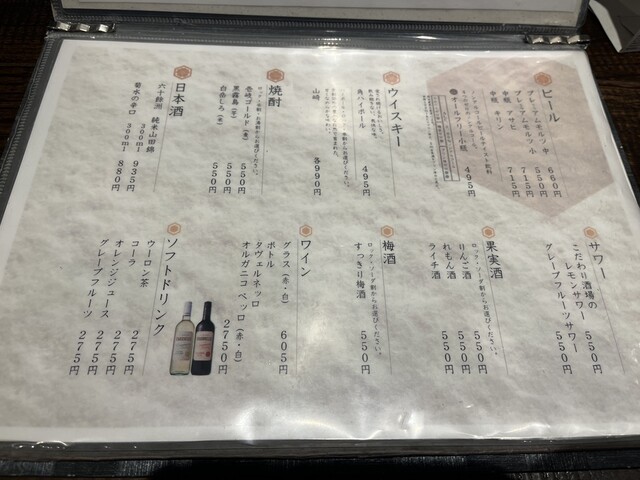 ビール
プレミアムモルツ 中 660円
プレミアムモルツ 小 550円
中瓶 アサヒ 715円
中瓶 キリン 715円
ノンアルコールビールテイスト飲料
オールフリー小瓶 495円
ウイスキー
角ハイボール 495円
山崎 各990円
焼酎
ロック・水割・お湯割からお選びください。
壱岐ゴールド（麦） 550円
黒霧島（芋） 550円
白岳しろ（米） 550円
日本酒
六十餘洲 純米山田錦
300ml 935円
菊水の辛口
300ml 880円
サワー
こだわり酒場の
レモンサワー 550円
グレープフルーツサワー 550円
果実酒
ロック・ソーダ割からお選びください。
りんご酒 550円
れもん酒 550円
ライチ酒 550円
梅酒
ロック・ソーダ割からお選びください。
すっきり梅酒 550円
ワイン
グラス（赤・白） 605円
ボトル
タヴェルネッロ
オルガニコ ベッロ（赤・白） 2750円
ソフトドリンク
ウーロン茶 275円
コーラ 275円
オレンジジュース 275円
グレープフルーツ 275円